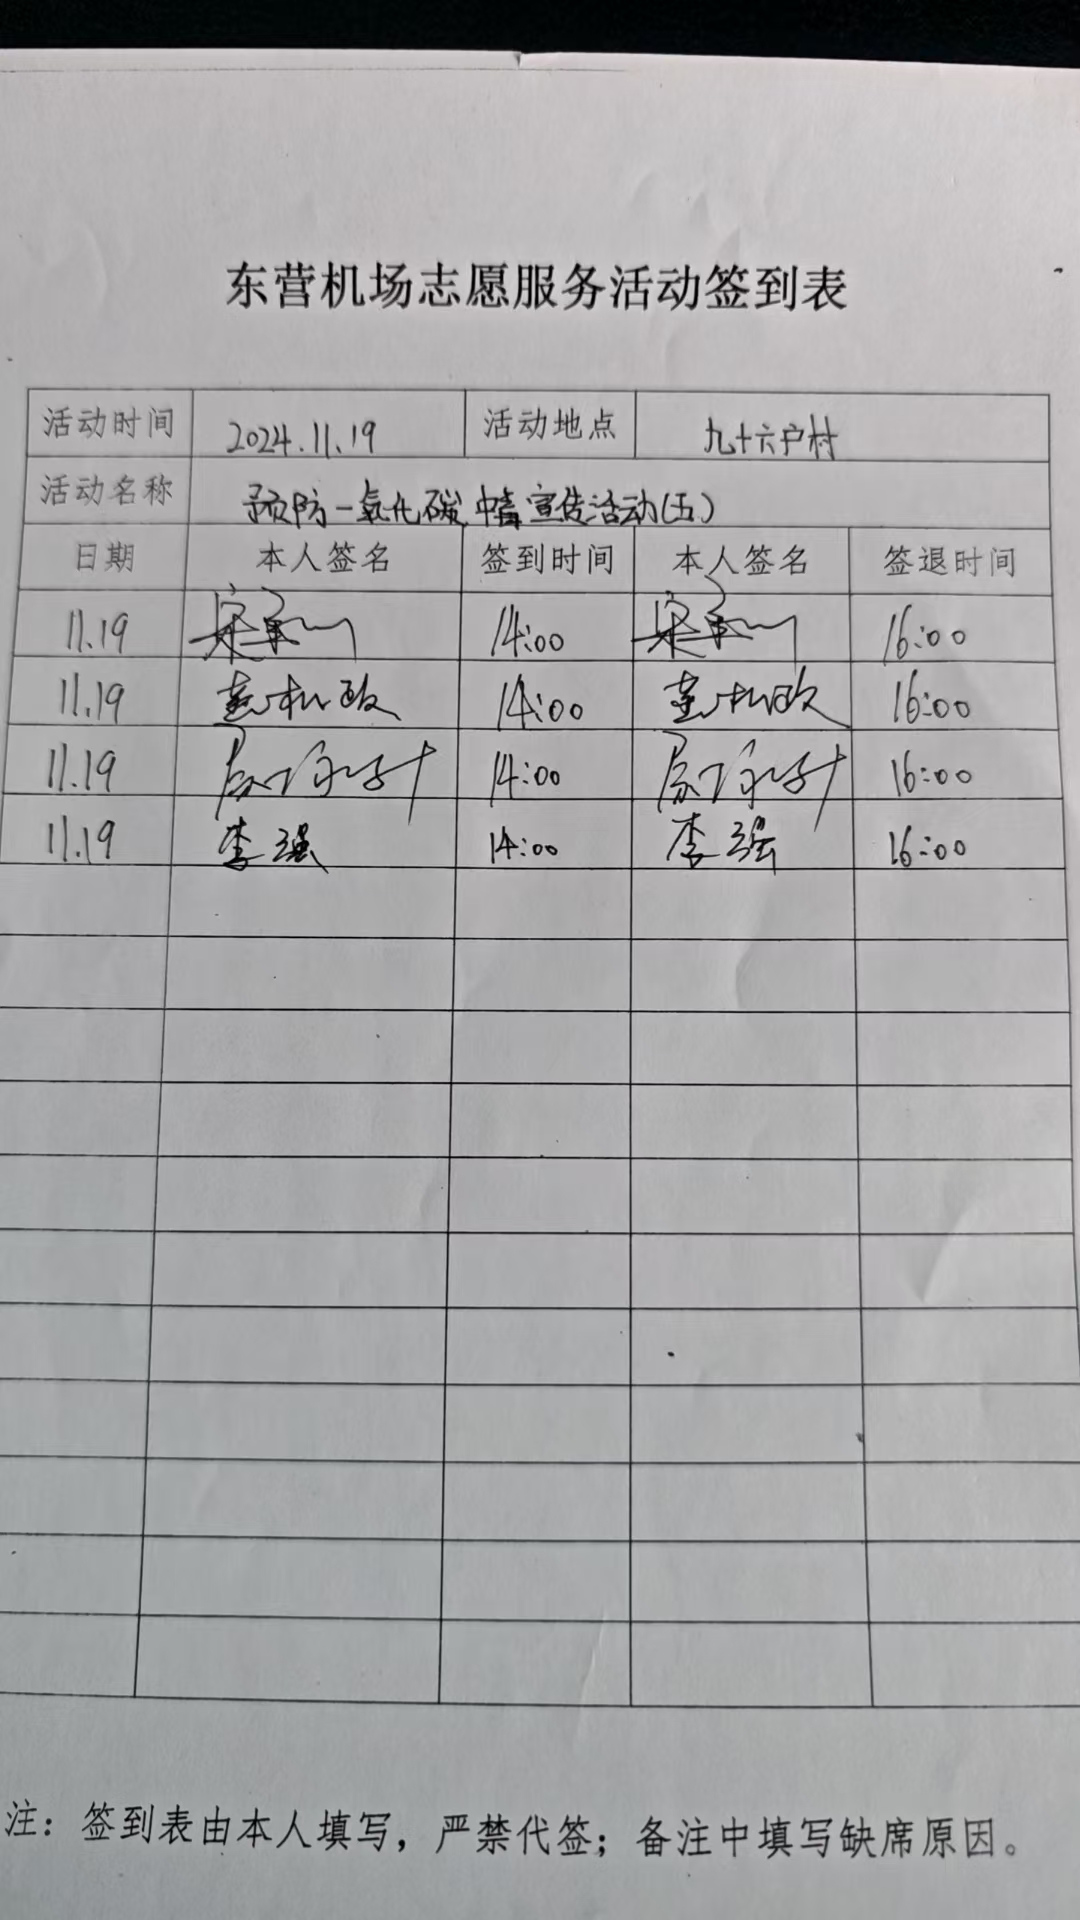 东营机场志愿服务活动签到表
活动时间 2024.11.19 活动地点 九十六户村
活动名称 预防一氧化碳中毒宣传活动(五)
日期 本人签名 签到时间 本人签名 签退时间
11.19 14:00 16:00
11.19 14:00 16:00
11.19 14:00 16:00
11.19 李强 14:00 李强 16:00
注：签到表由本人填写，严禁代签；备注中填写缺席原因。